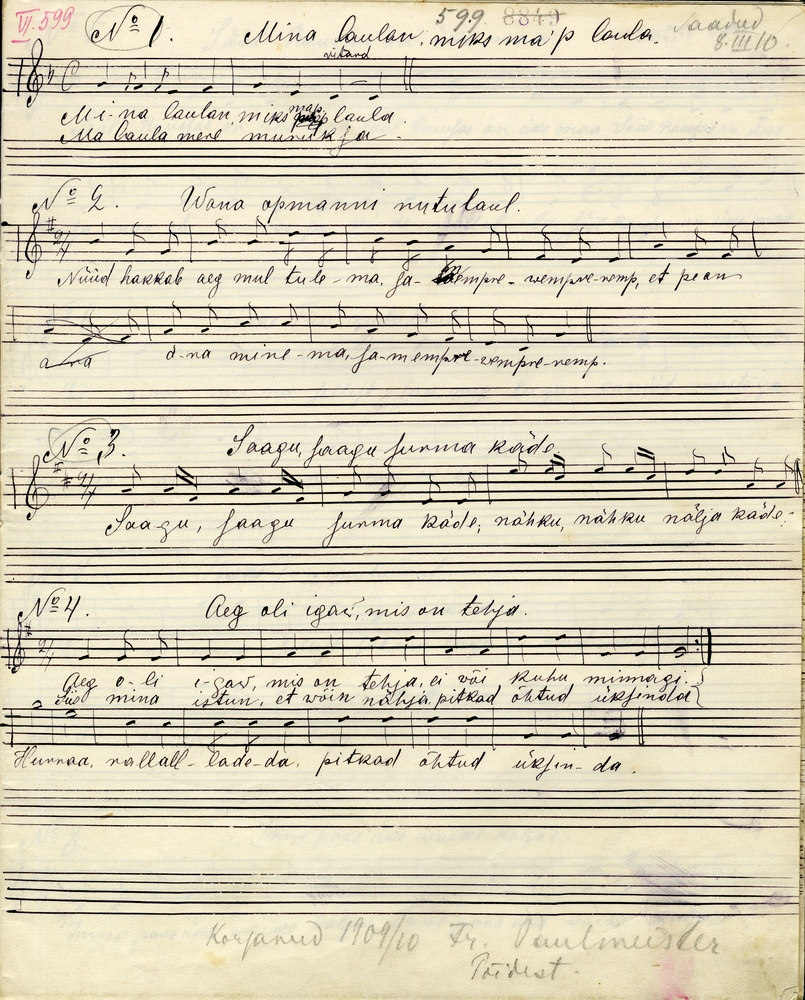 VI.599
599 8849
Saadud
8.III 10.
No 1. Mina laulan, miks ma'p laula.
ritard
Mi-na laulan, miks map laula.
Ma laula mere
No 2. Wana opmanni nutulaul.
Nüüd hakkab aeg mul tule-ma, ja-wempre-wempre-wemp, et pean
a-ra
ä-ra mine-ma, ja-wempre-wempre-wemp.
No 3. Saagu, saagu surma käde.
Saa-gu, saagu surma käde; nähku, nähku nälja käde.
No 4. Aeg oli igaw, mis on tehja.
Aeg o-li i-gaw, mis on tehja, ei või kuhu minnagi.
Siis mina istun, et wõin nähja, pitkad õhtud üksinda
Hurraa, rallall-lade-da, pitkad õhtud üksin-da.
Korjanud 1909/10 Fr. Paulmeister
Pöidest.